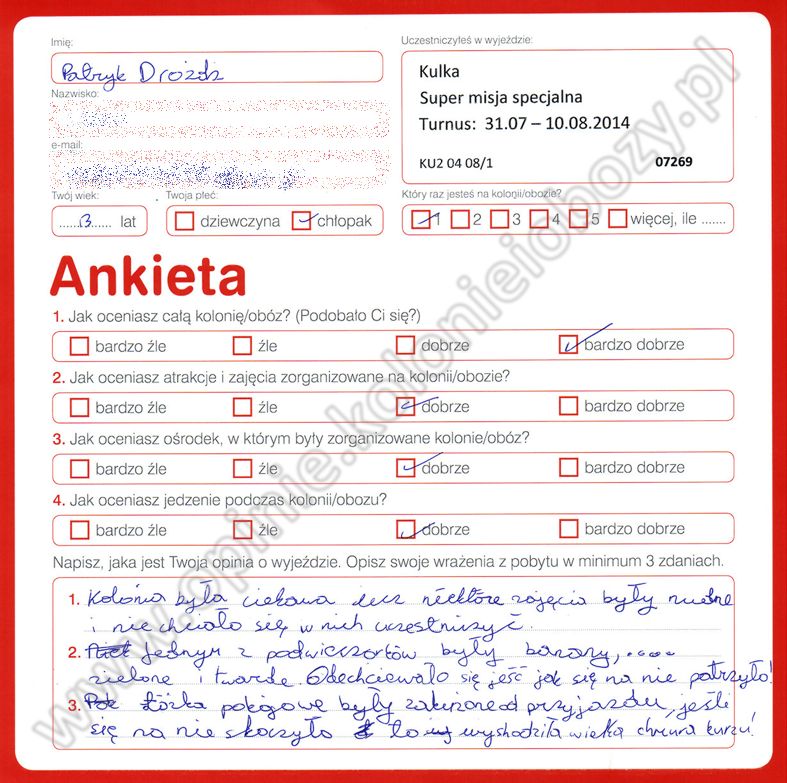 Imię:
Patryk Drozdz
Nazwisko:
e-mail:
Uczestniczyłeś w wyjeździe:
Kulka
Super misja specjalna
Turnus: 31.07 – 10.08.2014
KU2 04 08/1 07269
Twój wiek: Twoja płeć: Który raz jesteś na kolonii/obozie?
...... 13 ...... lat dziewczyna chłopak 1 2 3 4 5 więcej, ile .......
Ankieta
1. Jak oceniasz całą kolonię/obóz? (Podobało Ci się?)
bardzo źle źle dobrze bardzo dobrze
2. Jak oceniasz atrakcje i zajęcia zorganizowane na kolonii/obozie?
bardzo źle źle dobrze bardzo dobrze
3. Jak oceniasz ośrodek, w którym były zorganizowane kolonie/obóz?
bardzo źle źle dobrze bardzo dobrze
4. Jak oceniasz jedzenie podczas kolonii/obozu?
bardzo źle źle dobrze bardzo dobrze
Napisz, jaka jest Twoja opinia o wyjeździe. Opisz swoje wrażenia z pobytu w minimum 3 zdaniach.
1. Kolonia była ciekawa lecz niektóre zajęcia były nudne
i nie chciało się w nich uczestniczyć.
2. Jednym z podwieczorków były banany, .....
zielone i twarde. Odechciewało się jeść jak się na nie patrzyło!
3. Łóżka pokojowe były zakurzone od przyjazdu, jeśli
się na nie skoczyło to wychodziła wielka chmura kurzu!
www.opinie.kolonieiobozy.pl